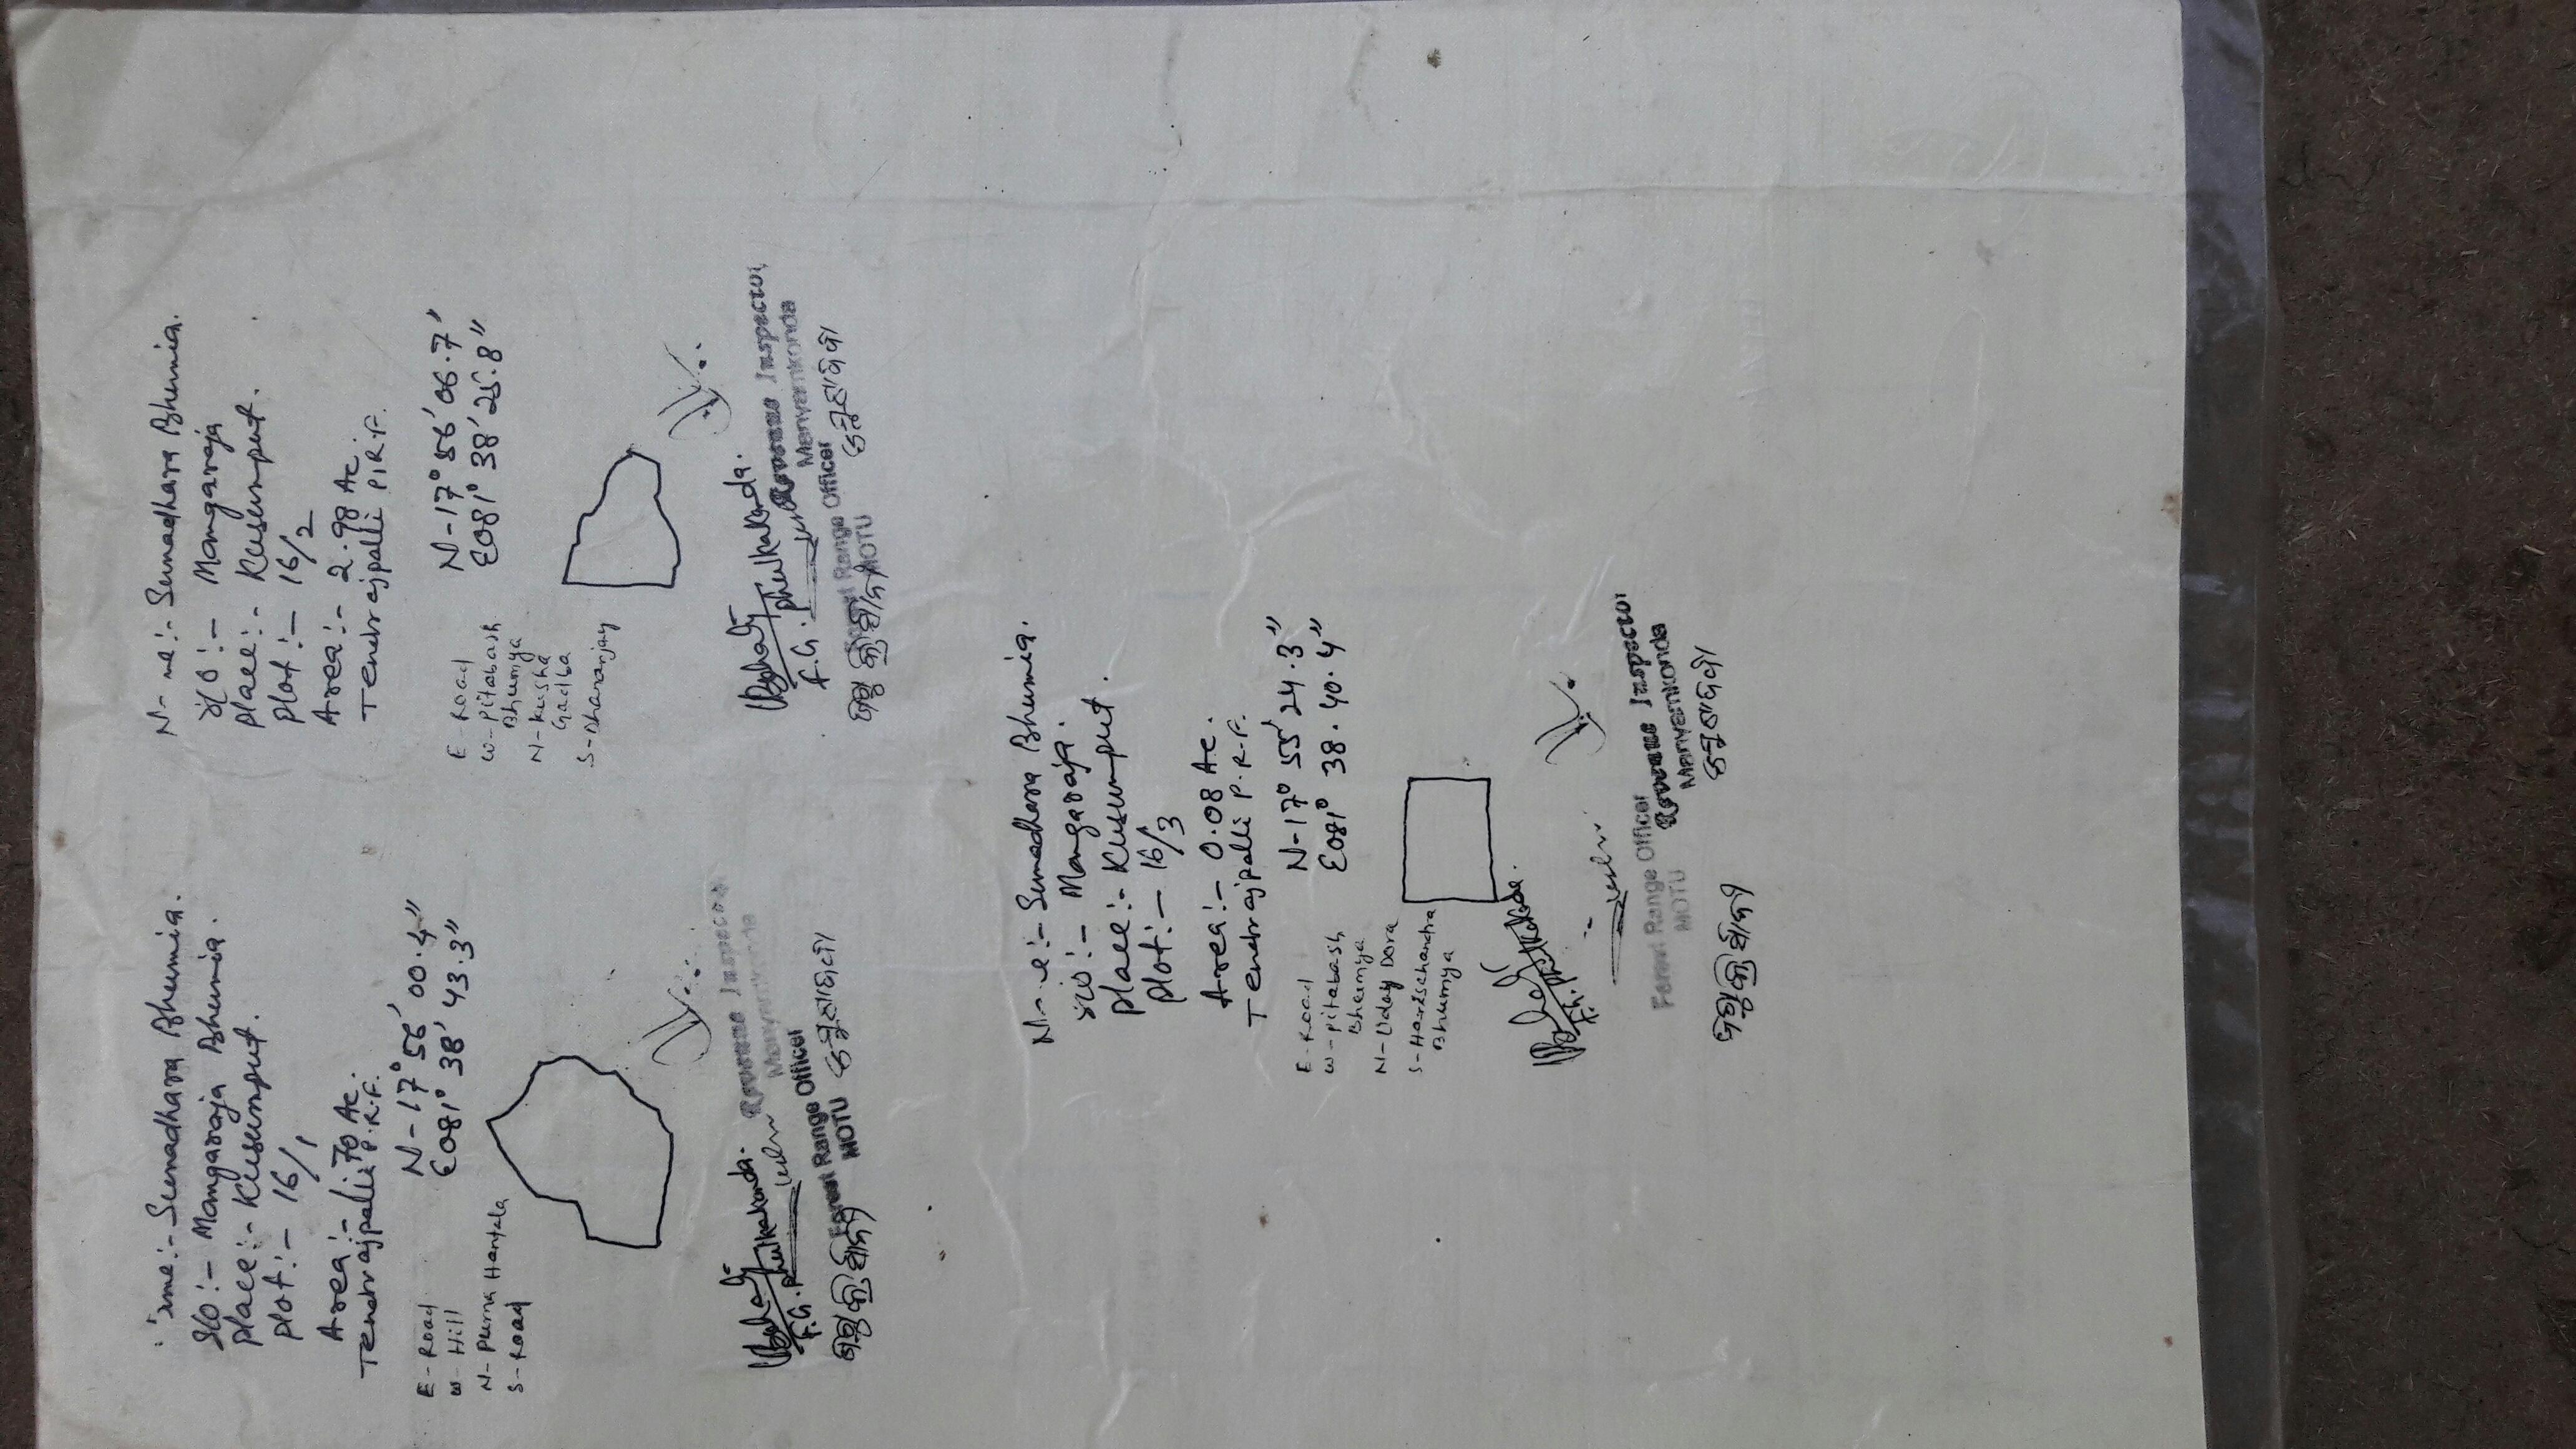 Name :- Sunadhara Bhumia.
S/O :- Mangaraja Bhumia.
Place :- Kusumput.
Plot :- 16/1
Area :- 1.70 Ac.
Tentrajpalli P.R.F.
N-17° 56' 00.4"
E081° 38' 43.3"
E-Road
W-Hill
N-Purna Hantala
S-Road
F.G. Phulkakonda.
Revenue Inspector
Manyamkonda
Forest Range Officer
MOTU
Sunadhara Bhumia.
S/O :- Mangaraja
Place :- Kusumput.
Plot :- 16/2
Area :- 2.98 Ac.
Tentrajpalli P.R.F.
N-17° 56' 06.7"
E081° 38' 25.8"
E-Road
W-Pitabash
Bhumya
N-Kusha
Gadba
S-Dharanjay
F.G. Phulkakonda.
Revenue Inspector
Manyamkonda
Forest Range Officer
MOTU
Sunadhara Bhumia.
S/O :- Mangaraja.
Place :- Kusumput.
Plot :- 16/3
Area :- 0.08 Ac.
Tentrajpalli P.R.F.
N-17° 55' 24.3"
E081° 38. 40.4"
E-Road
W-Pitabash
Bhumya
N-Uday Dora
S-Harischandra
Bhumya
F.G. Phulkakonda.
Revenue Inspector
Manyamkonda
Forest Range Officer
MOTU